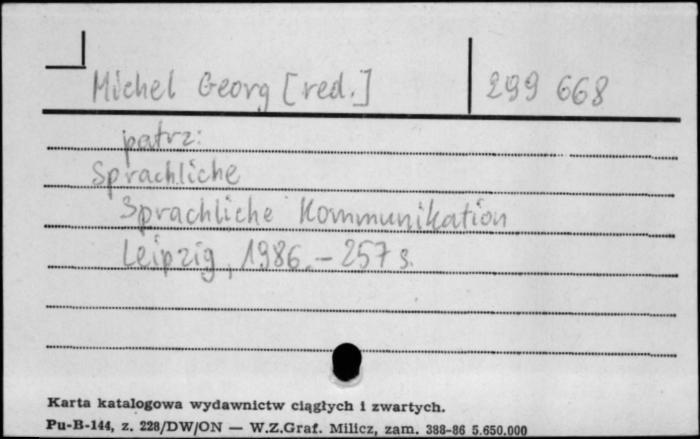 Michel Georg [red.] 299 668
patrz:
Sprachliche
Sprachliche Kommunikation
Leipzig, 1986. – 257 s.
Karta katalogowa wydawnictw ciągłych i zwartych.
Pu-B-144, z. 228/DW/ON — W.Z.Graf. Milicz, zam. 388-86 5.650.000